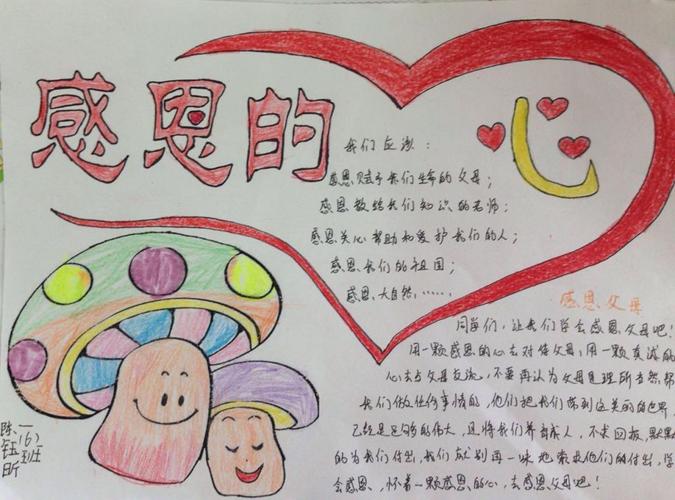 感恩的心
我们应该：
感恩赋予我们生命的父母；
感恩教给我们知识的老师；
感恩关心帮助和爱护我们的人；
感恩我们的祖国；
感恩大自然……
感恩父母
同学们，让我们学会感恩父母吧！
用一颗感恩的心去对待父母，用一颗真诚的
心去与父母交流，不要再认为父母是理所当然帮
我们做任何事情的，他们把我们带到这美丽的世界，
已经是足够的伟大，且将我们养育成人，不求回报，默默
的为我们付出，我们就别再一味地索求他们的付出，学
会感恩，怀着一颗感恩的心，去感恩父母吧！
一(6)班
陈钰昕